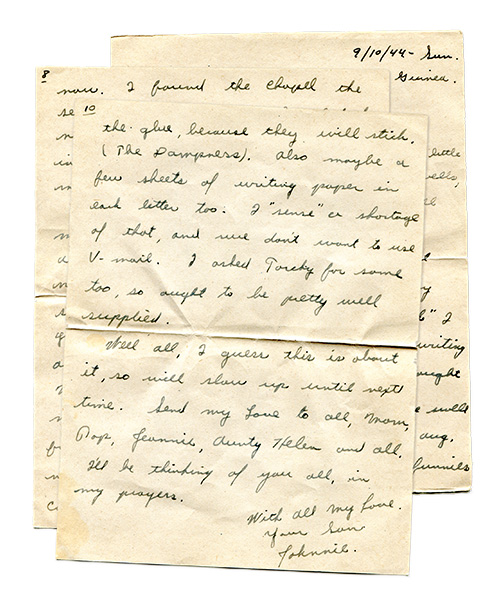 9/10/44 - Sun.
Guinea.
little
wells,
" I
writing
wells
aug.
funnies
8
now. I found the chapel the
se
10
the glue, because they will stick.
(The Dampness). Also maybe a
few sheets of writing paper in
each letter too. I "sense" a shortage
of that, and we don't want to use
V-mail. I asked Torchy for some
too, so ought to be pretty well
supplied.
Well all, I guess this is about
it, so will slow up until next
time. Send my Love to all, Mom,
Pop, Jeannie, Aunty Helen and all.
I'll be thinking of you all, in
my prayers.
With all my Love.
Your Son
Johnnie.